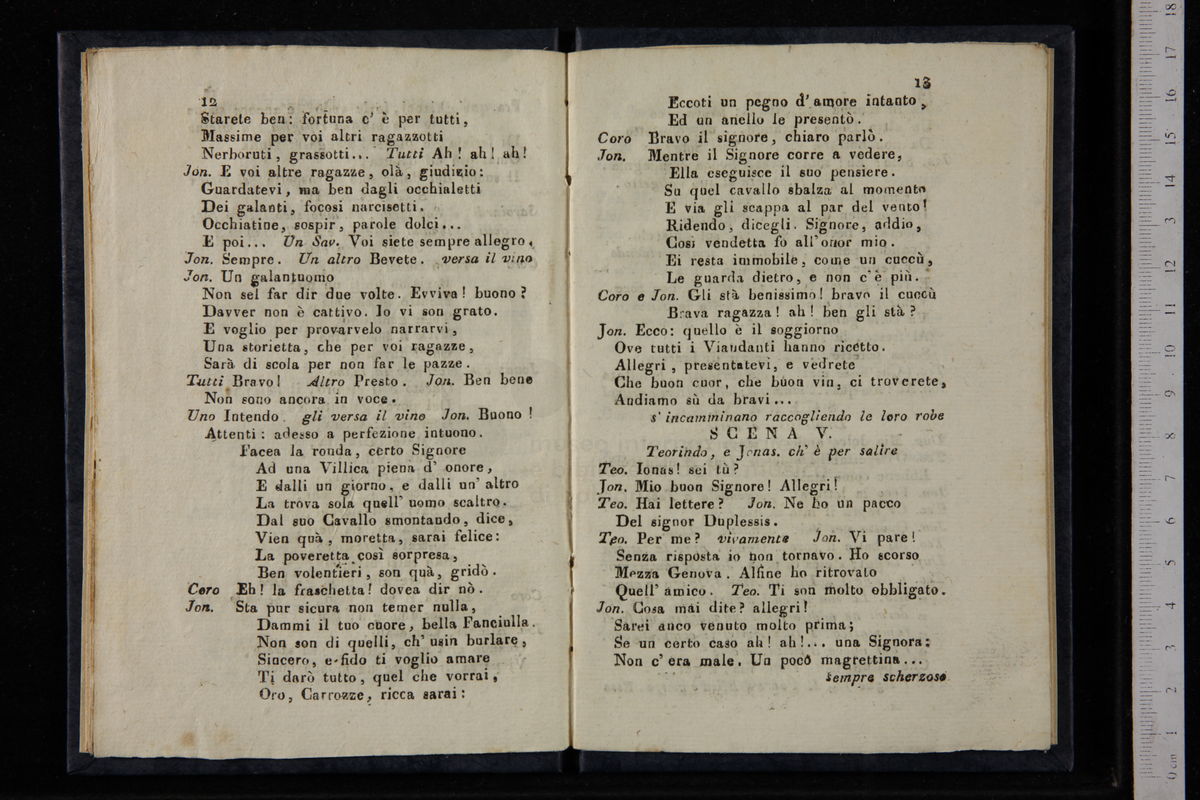 12
Starete ben: fortuna c' è per tutti,
Massime per voi altri ragazzotti
Nerboruti, grassotti... Tutti Ah! ah! ah!
Jon. E voi altre ragazze, olà, giudizio:
Guardatevi, ma ben dagli occhialetti
Dei galanti, focosi narcisetti.
Occhiatine, sospir, parole dolci...
E poi... Un Sav. Voi siete sempre allegro.
Jon. Sempre. Un altro Bevete. versa il vino
Jon. Un galantuomo
Non sel far dir due volte. Evviva! buono?
Davver non è cattivo. Io vi son grato.
E voglio per provarvelo narrarvi,
Una storietta, che per voi ragazze,
Sarà di scola per non far le pazze.
Tutti Bravo! Altro Presto. Jon. Ben bene
Non sono ancora in voce.
Uno Intendo. gli versa il vino Jon. Buono!
Attenti: adesso a perfezione intuono.
Facea la ronda, certo Signore
Ad una Villica piena d' onore,
E dalli un giorno, e dalli un' altro
La trova sola quell' uomo scaltro.
Dal suo Cavallo smontando, dice,
Vien quà, moretta, sarai felice:
La poveretta così sorpresa,
Ben volentieri, son quà, gridò.
Coro Eh! la fraschetta! dovea dir nò.
Jon. Sta pur sicura non temer nulla,
Dammi il tuo cuore, bella Fanciulla.
Non son di quelli, ch' usin burlare,
Sincero, e fido ti voglio amare
Ti darò tutto, quel che vorrai,
Oro, Carrozze, ricca sarai:
13
Eccoti un pegno d' amore intanto,
Ed un anello le presentò.
Coro Bravo il signore, chiaro parlò.
Jon. Mentre il Signore corre a vedere,
Ella eseguisce il suo pensiere.
Su quel cavallo sbalza al momento
E via gli scappa al par del vento!
Ridendo, dicegli. Signore, addio,
Così vendetta fo all' onor mio.
Ei resta immobile, come un cuccù,
Le guarda dietro, e non c' è più.
Coro e Jon. Gli stà benissimo! bravo il cuccù
Brava ragazza! ah! ben gli stà?
Jon. Ecco: quello è il soggiorno
Ove tutti i Viandanti hanno ricetto.
Allegri, presentatevi, e vedrete
Che buon cuor, che buon vin, ci troverete,
Andiamo sù da bravi...
s' incamminano raccogliendo le loro robe
SCENA V.
Teorindo, e Jonas. ch' è per salire
Teo. Ionas! sei tù?
Jon. Mio buon Signore! Allegri!
Teo. Hai lettere? Jon. Ne ho un pacco
Del signor Duplessis.
Teo. Per me? vivamente Jon. Vi pare!
Senza risposta io non tornavo. Ho scorso
Mezza Genova. Alfine ho ritrovato
Quell' amico. Teo. Ti son molto obbligato.
Jon. Cosa mai dite? allegri!
Sarei anco venuto molto prima;
Se un certo caso ah! ah!... una Signora:
Non c' era male. Un pocò magrettina...
sempre scherzoso